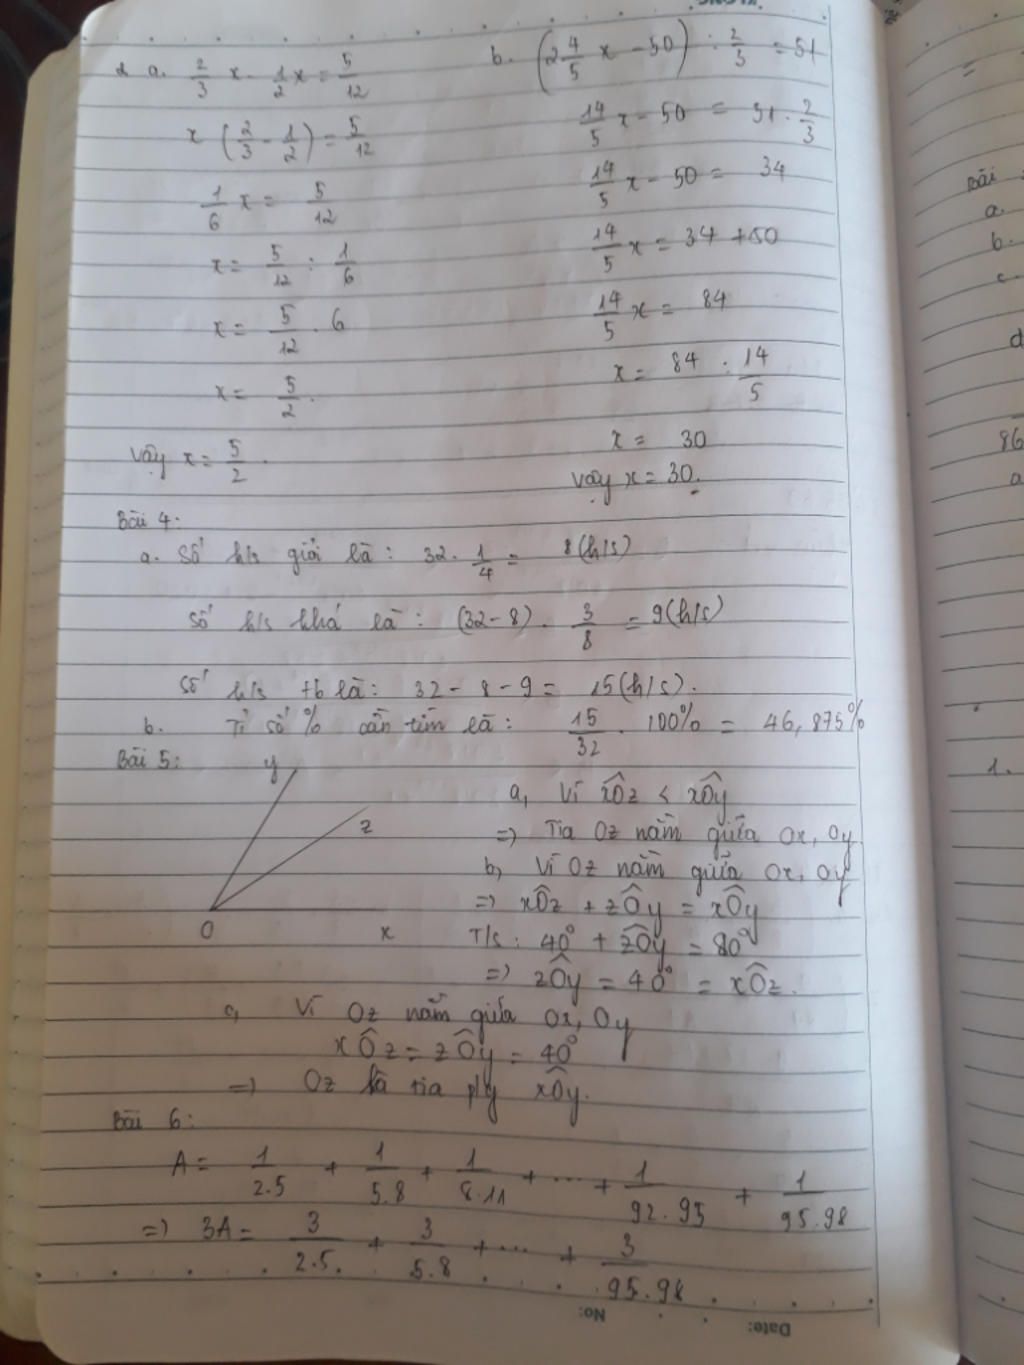 a. 2/3 x - 1/2 x = 5/12
x (2/3 - 1/2) = 5/12
1/6 x = 5/12
x = 5/12 : 1/6
x = 5/12 . 6
x = 5/2.
Vậy x = 5/2.
b. (2 4/5 x - 50) : 2/3 = 51
14/5 x - 50 = 51 . 2/3
14/5 x - 50 = 34
14/5 x = 34 + 50
14/5 x = 84
x = 84 : 14/5
x = 30
Vậy x = 30.
Bài 4:
a. Số h/s giỏi là: 32 . 1/4 = 8 (h/s)
Số h/s khá là: (32 - 8) . 3/8 = 9 (h/s)
Số h/s tb là: 32 - 8 - 9 = 15 (h/s).
b. Tỉ số % cần tìm là: 15/32 . 100% = 46,875%
Bài 5:
y
z
O
x
a, Vì xÔz < xÔy
=> Tia Oz nằm giữa Ox, Oy
b, Vì Oz nằm giữa Ox, Oy
=> xÔz + zÔy = xÔy
T/s: 40° + zÔy = 80°
=> zÔy = 40° = xÔz.
c, Vì Oz nằm giữa Ox, Oy
xÔz = zÔy = 40°
=> Oz là tia p/g xÔy.
Bài 6:
A = 1/2.5 + 1/5.8 + 1/8.11 + ... + 1/92.95 + 1/95.98
=> 3A = 3/2.5. + 3/5.8 + ... + 3/95.98
No:
Date:
Bài
a.
b.
c.
d
86
a
1.